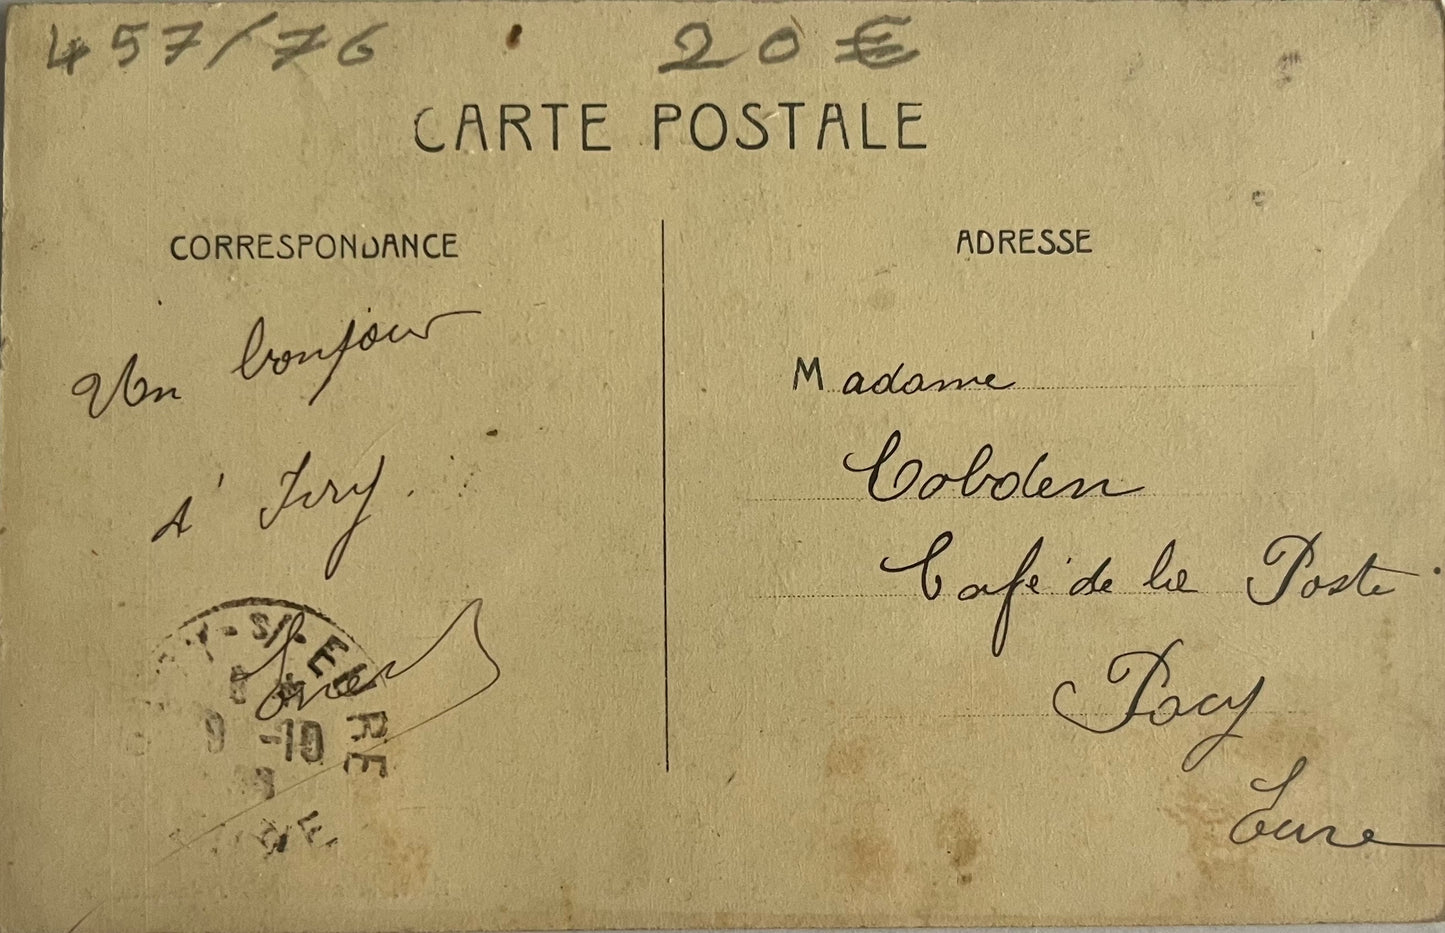 457/76 20 €
CARTE POSTALE
CORRESPONDANCE
Un bonjour
d'Ivry.
ADRESSE
Madame
Cobden
Café de la Poste
Pacy
Eure
S/-EURE
-10